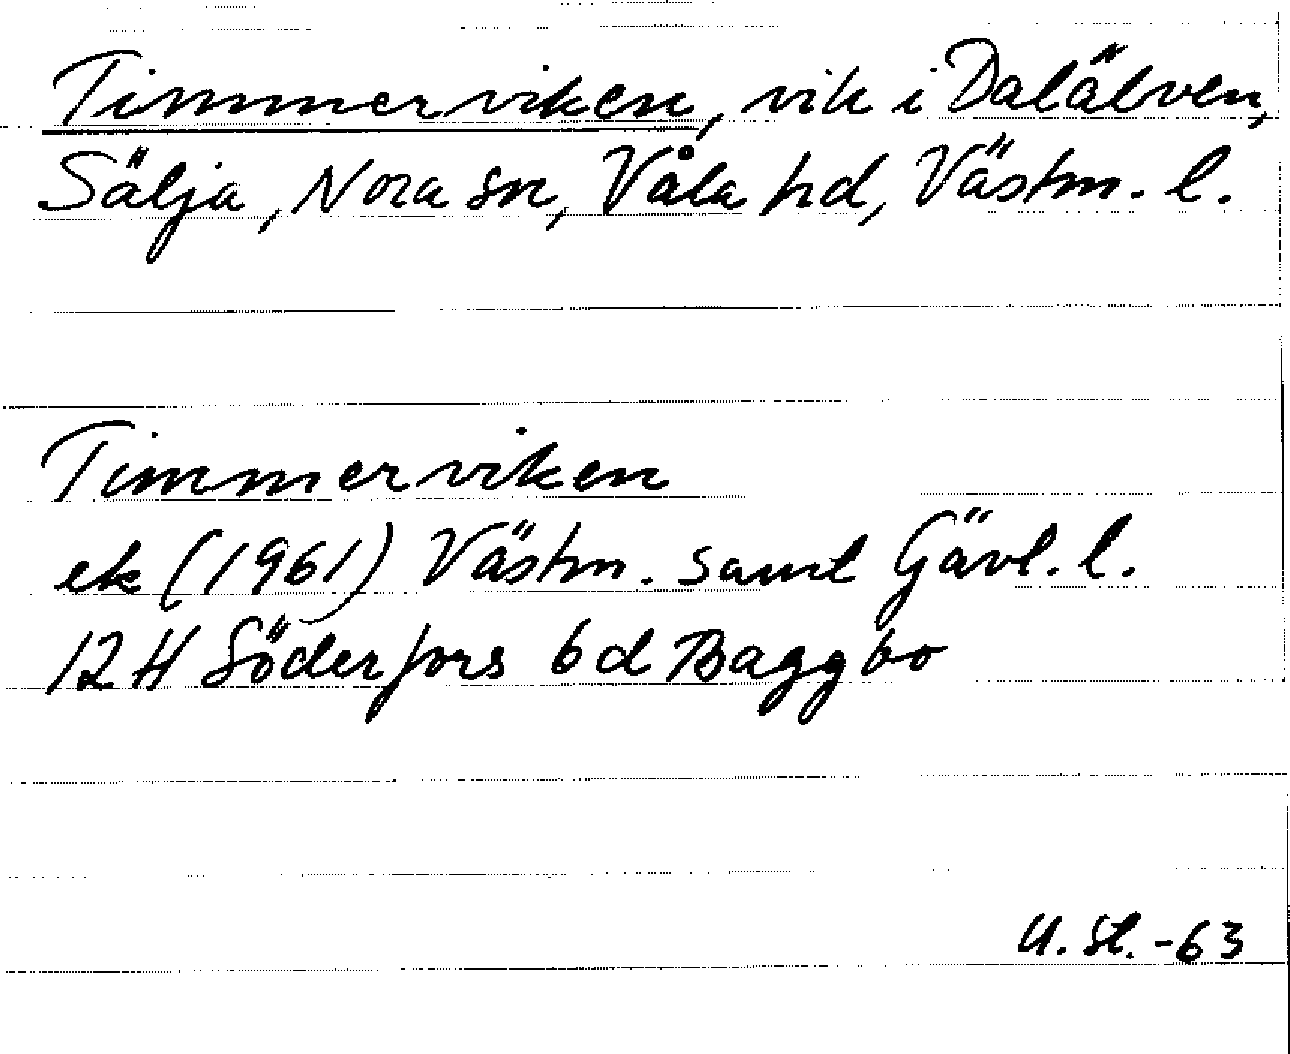 Timmerviken, vik i Dalälven,
Sälja, Nora sn, Våla hd, Västm. l.
Timmerviken
ek (1961) Västm. samt Gävl. l.
12 H Söderfors 6d Baggbo
U. St. -63